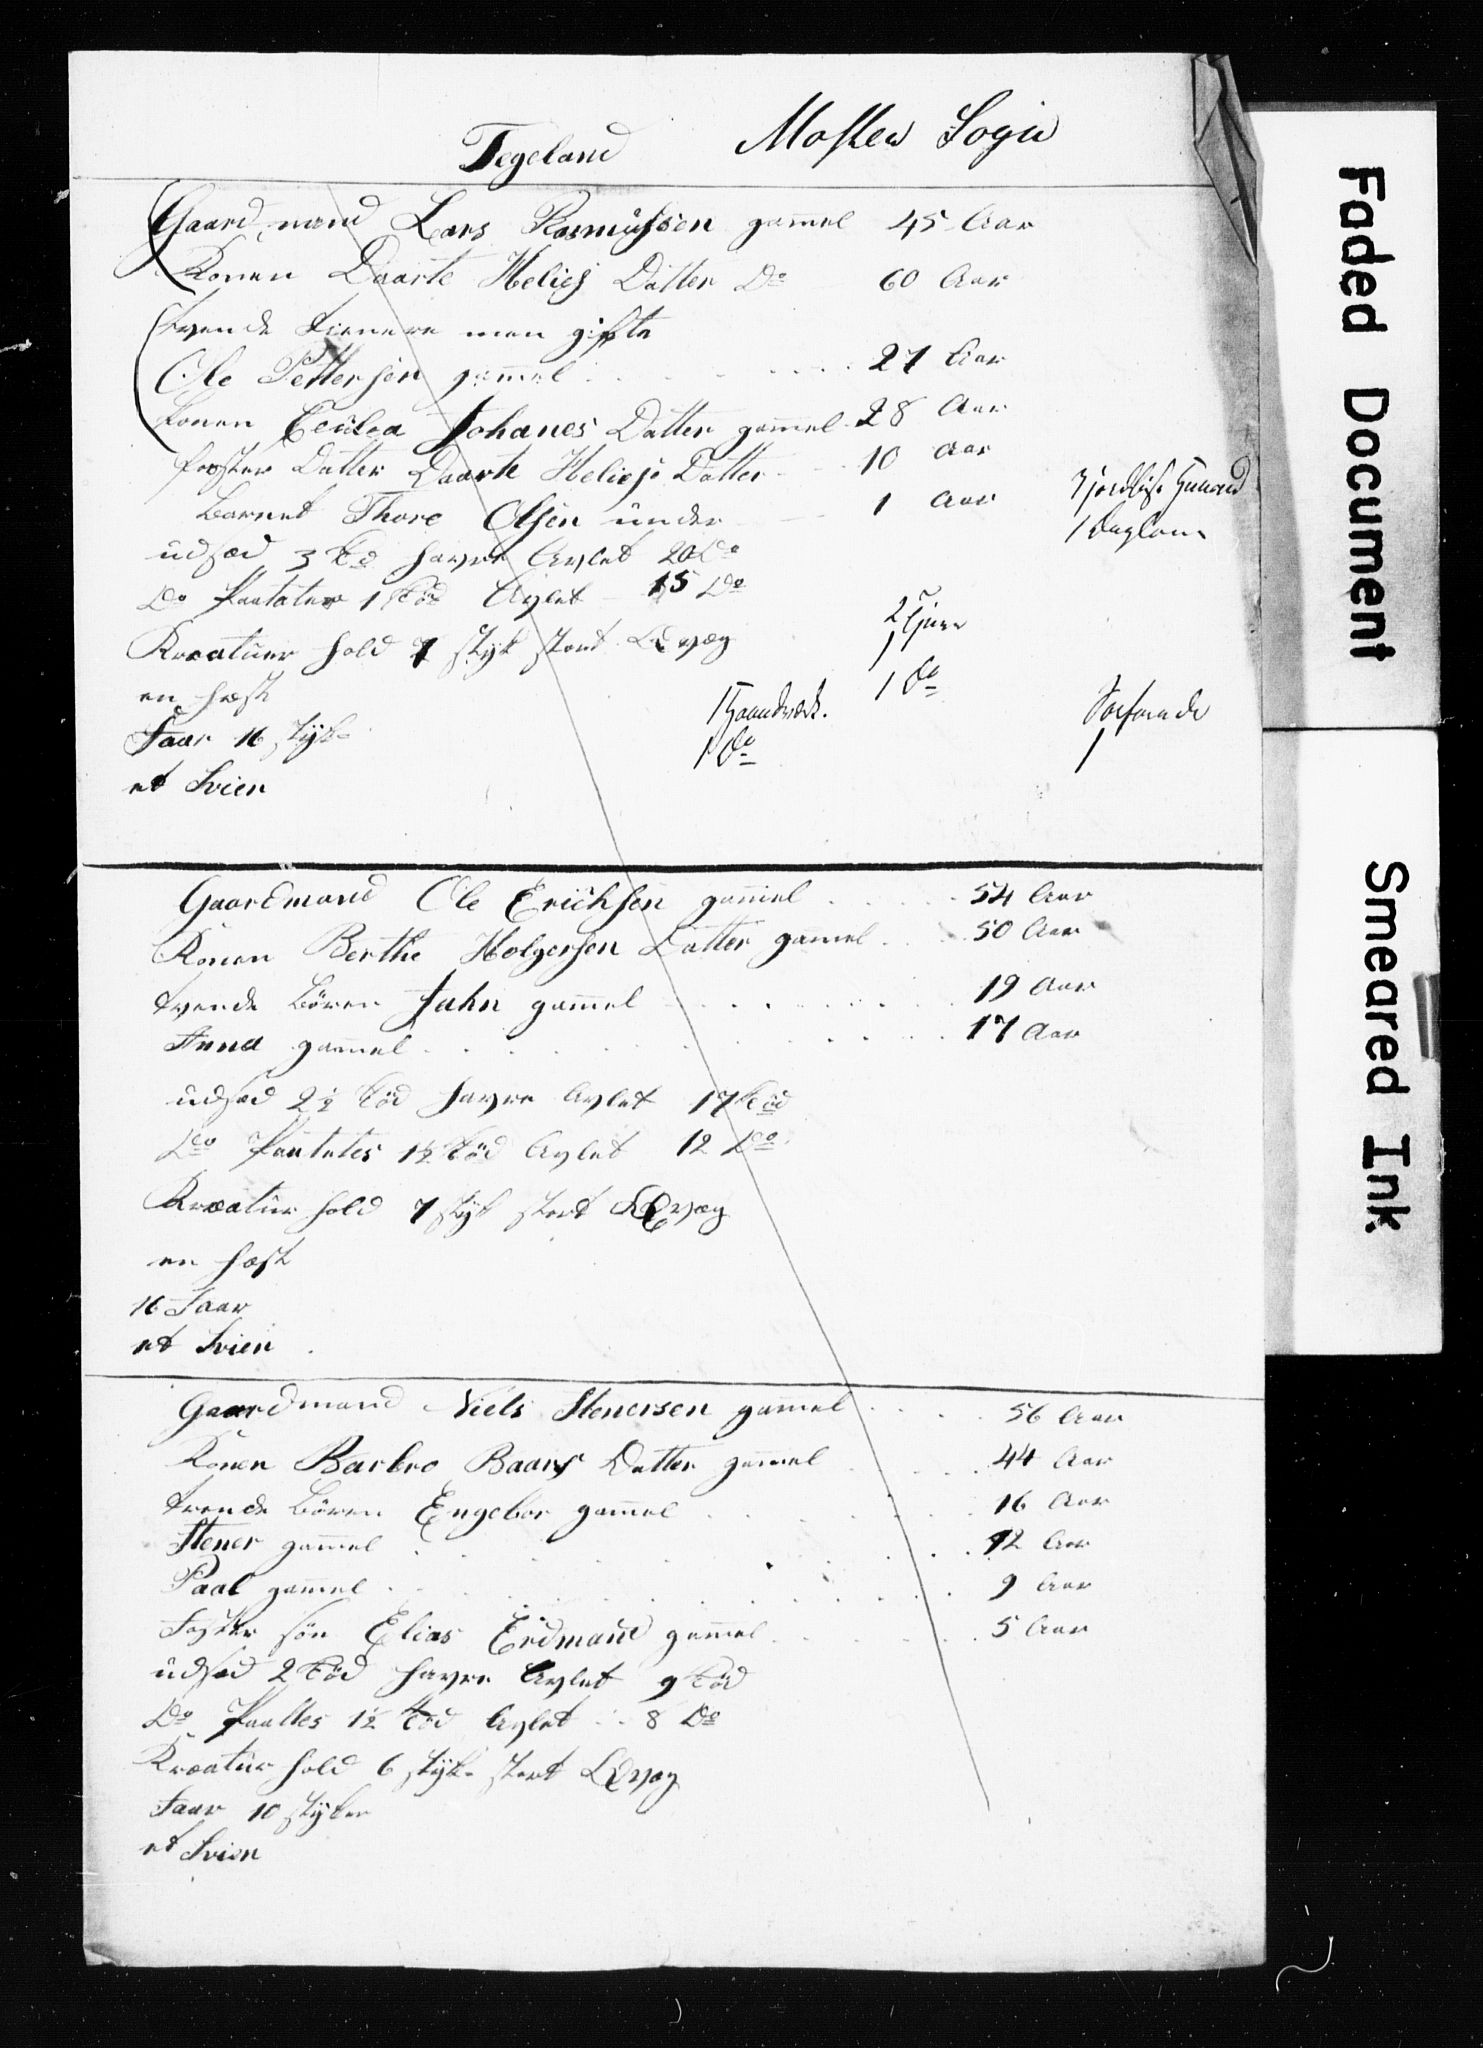 Tegeland Mosken Sogn
Gaardmand Lars Rasmussen gam̅el 45 Aar
Konen Daarte Helies Datter Do 60 Aar
tvende tienere men gifte
Ole Pettersen gam̅el 27 Aar
konen Cecilea Johanes Datter gam̅el 28 Aar
foster Datter Daarte Helies Datter 10 Aar
Barnet Thore Olsen under 1 Aar
3 jordløse Huusmænd
1 Daglønn
udsæd 3 Td havre Avlet 20 Do
Do Pautates 1 Tød Avlet 15 Do
Kreatuer hold 7 styk stort Qvæg
2 Tjen
1
en hest
1 Do
Faar 16 styke
1 Haandverk.
1 Do
1
et Svien
Gaardmand Ole Erichsen gam̅el 54 Aar
Konen Berthe Holgersen Datter gam̅el 50 Aar
tvende Bören Jahn gam̅el 19 Aar
Anna gam̅el 17 Aar
udsæd 2½ Tød havre Avlet 17 Tød
Do Pautates 1½ Tød Avlet 12 Do
Kreatur hold 7 styk stort Qvæg
en hæst
16 Faar
et Svien
Gaardmand Niels Stenersen gam̅el 56 Aar
Konen Barbro Baars Datter gam̅el 44 Aar
trende Bören Engebor gam̅el 16 Aar
Stener gam̅el 12 Aar
Paal gam̅el 9 Aar
Foster sön Elias Erdmann gam̅el 5 Aar
udsæd 2 Tød havre Avlet 9 Tød
Do Pauttes 1½ Tød Avlet 8 Do
Kreatur hold 6 styke stort Qvæg
Faar 10 styker
et Svien
Faded Document
Smeared Ink